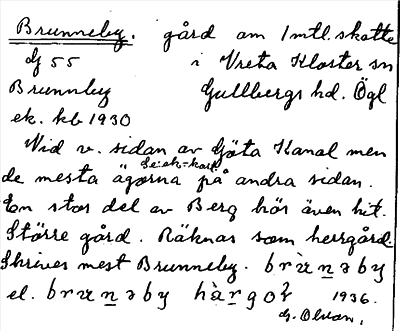 Brunneby. gård om 1 mtl. skatte
dj 55 i Vreta Kloster sn
Brunnby Gullbergs hd. Ögl
ek. kb 1930
Vid v. sidan av Göta Kanal men
Se ek=kart
de mesta ägorna på andra sidan.
En stor del av Berg hör även hit.
Större gård. Räknas som herrgård.
Skrives mest Brunneby.
el. hàrgoꝛ̣ 1936.
G. Olson.